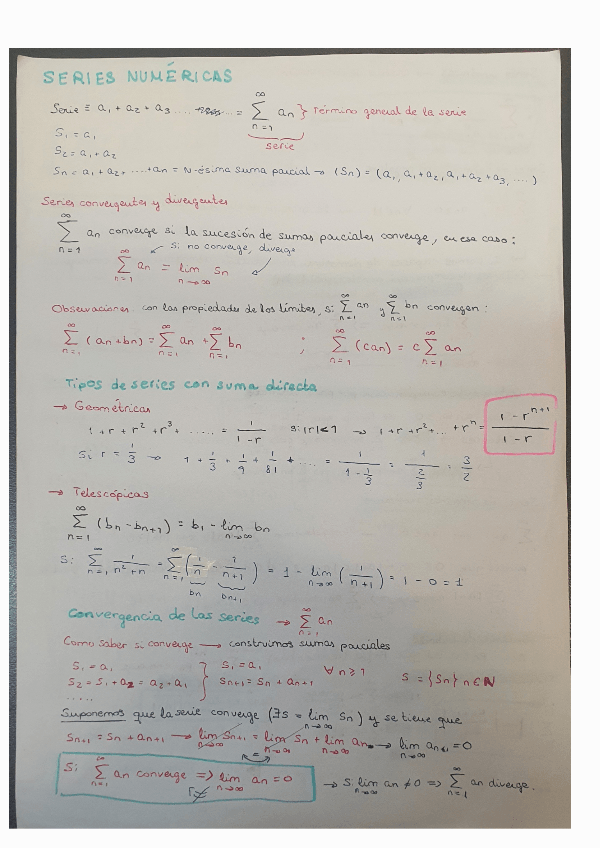 SERIES NUMÉRICAS
Serie ≡ a₁ + a₂ + a₃ ..... = ∑_{n=1}^{∞} an } Término general de la serie
serie
S₁ = a₁
S₂ = a₁ + a₂
Sn = a₁ + a₂ + ..... + an = N-ésima suma parcial → (Sn) = (a₁, a₁+a₂, a₁+a₂+a₃, ....)
Series convergentes y divergentes
∑_{n=1}^{∞} an converge si la sucesión de sumas parciales converge, en ese caso:
si no converge, diverge
∑_{n=1}^{∞} an = lim_{n→∞} Sn
Observaciones con las propiedades de los límites, si ∑_{n=1}^{∞} an y ∑_{n=1}^{∞} bn convergen:
∑_{n=1}^{∞} (an+bn) = ∑_{n=1}^{∞} an + ∑_{n=1}^{∞} bn ; ∑_{n=1}^{∞} (can) = c ∑_{n=1}^{∞} an
Tipos de series con suma directa
→ Geométricas
1 + r + r² + r³ + ..... = 1/(1-r) si |r|<1 → 1 + r + r² + ... + rⁿ = (1 - rⁿ⁺¹)/(1 - r)
Si r = 1/3 → 1 + 1/3 + 1/9 + 1/81 + .... = 1/(1 - 1/3) = 1/(2/3) = 3/2
→ Telescópicas
∑_{n=1}^{∞} (bn - bn+1) = b₁ - lim_{n→∞} bn
Si ∑_{n=1}^{∞} 1/(n²+n) = ∑_{n=1}^{∞} (1/n - 1/(n+1)) = 1 - lim_{n→∞} (1/(n+1)) = 1 - 0 = 1
bn bn+1
Convergencia de las series → ∑_{n=1}^{∞} an
Como saber si converge → construimos sumas parciales
S₁ = a₁ } S₁ = a₁ ∀ n ≥ 1 S = {Sn} n∈N
S₂ = S₁ + a₂ = a₂ + a₁ Sn+1 = Sn + an+1
.....
Suponemos que la serie converge (∃S = lim_{n→∞} Sn) y se tiene que
Sn+1 = Sn + an+1 → lim_{n→∞} Sn+1 = lim_{n→∞} Sn + lim_{n→∞} an → lim_{n→∞} an+1 = 0
=
Si ∑_{n=1}^{∞} an converge => lim_{n→∞} an = 0 → Si lim_{n→∞} an ≠ 0 => ∑_{n=1}^{∞} an diverge.